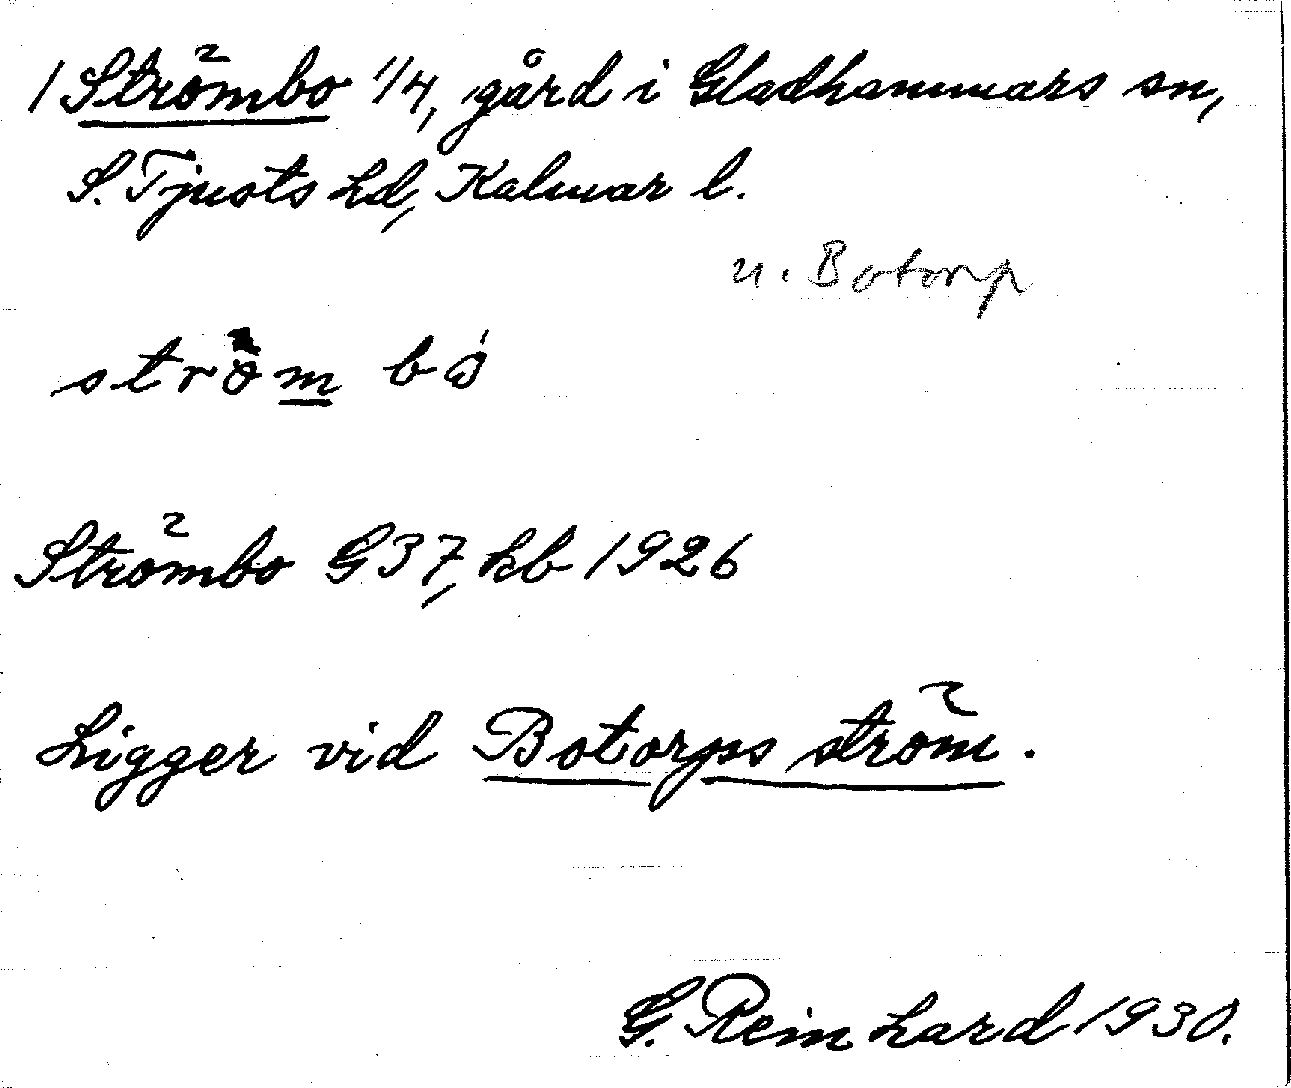 1 Strömbo 1/4, gård i Gladhammars sn,
S. Tjusts hd, Kalmar l.
u. Botorp
ström bó
Strömbo G 37, kb 1926
Ligger vid Botorps ström.
G. Reinhard 1930.